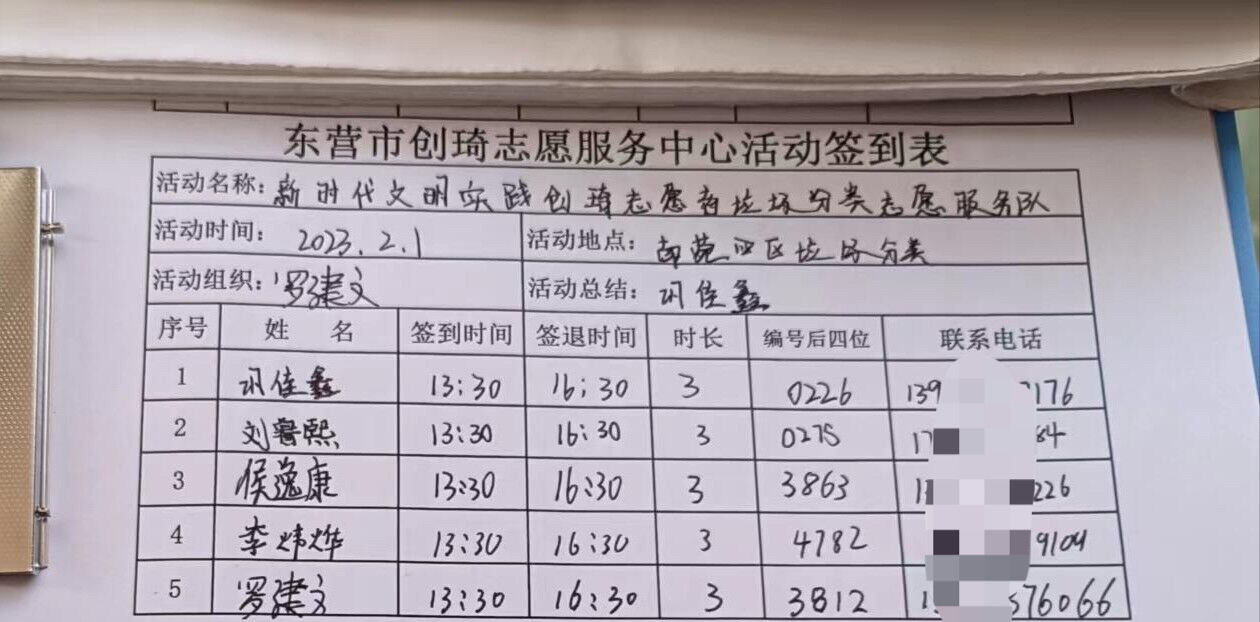 东营市创琦志愿服务中心活动签到表
活动名称：新时代文明实践创琦志愿者垃圾分类志愿服务队
活动时间： 2023.2.1 活动地点： 南苑四区垃圾分类
活动组织：罗建文 活动总结： 佳鑫
序号 姓 名 签到时间 签退时间 时长 编号后四位 联系电话
1 佳鑫 13:30 16:30 3 0226 139 7176
2 刘睿熙 13:30 16:30 3 0275 17 84
3 侯逸康 13:30 16:30 3 3863 13 226
4 李炜烨 13:30 16:30 3 4782 9104
5 罗建文 13:30 16:30 3 3812 1 576066